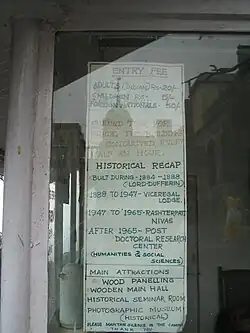 ENTRY FEE
ADULTS (INDIAN) RS. 20/-
CHILDREN RS.
FOREIGN NATIONALS 50/-
HISTORICAL RECAP
BUILT DURING - 1884 - 1888
(LORD-DUFFERIN)
1888 TO 1947 - VICEREGAL
LODGE.
1947 TO 1965 - RASHTERPATI
NIVAS
AFTER 1965 - POST
DOCTORAL RESEARCH
CENTER
(HUMANITIES & SOCIAL
SCIENCES)
MAIN ATTRACTIONS
WOOD PANELLING
WOODEN MAIN HALL
HISTORICAL SEMINAR ROOM
PHOTOGRAPHIC MUSEUM
(HISTORICAL)
PLEASE MAINTAIN SILENCE IN THE
THANK YOU